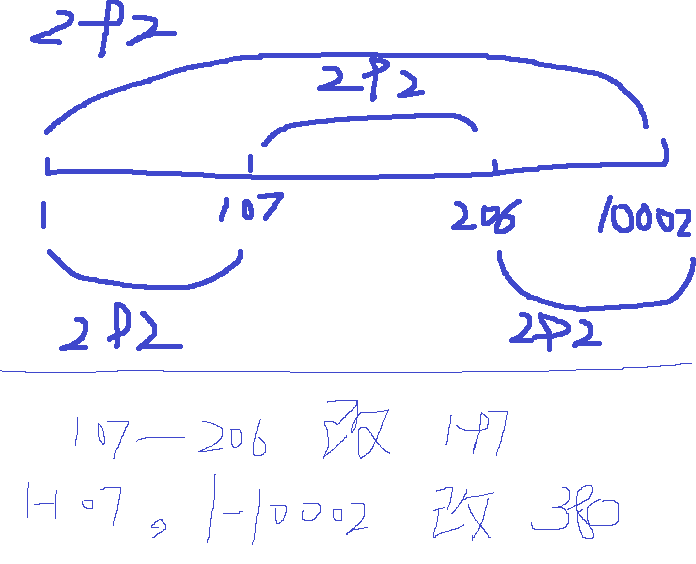 2P2
2P2
1 107 206 10002
2P2 2P2
107—206 改 197
1-107。1-10002 改 380